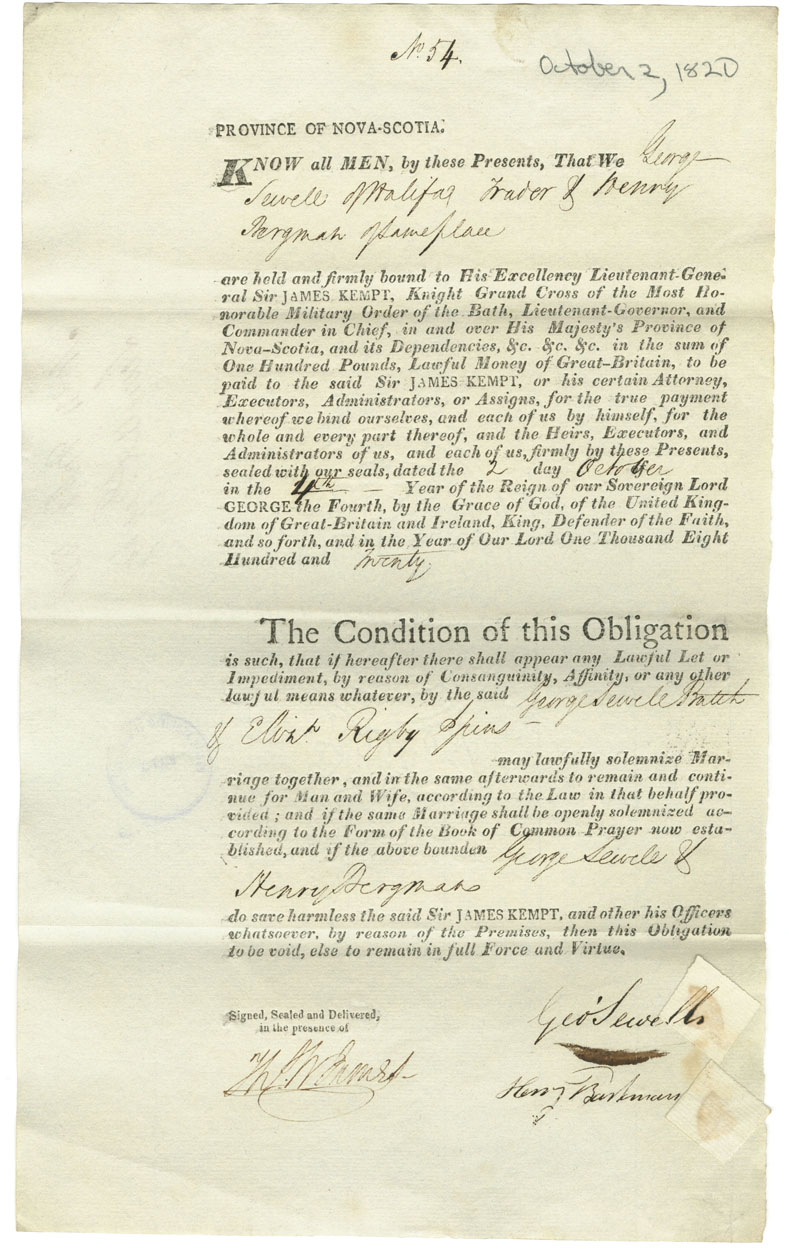 No. 54.
October 2, 1820
PROVINCE OF NOVA-SCOTIA.
KNOW all MEN, by these Presents, That We George
Sewell of Halifax Trader & Henry
Bergman of same place
are held and firmly bound to His Excellency Lieutenant-Gene-
ral Sir JAMES KEMPT, Knight Grand Cross of the Most Ho-
norable Military Order of the Bath, Lieutenant-Governor, and
Commander in Chief, in and over His Majesty's Province of
Nova-Scotia, and its Dependencies, &c. &c. &c. in the sum of
One Hundred Pounds, Lawful Money of Great-Britain, to be
paid to the said Sir JAMES KEMPT, or his certain Attorney,
Executors, Administrators, or Assigns, for the true payment
whereof we bind ourselves, and each of us by himself, for the
whole and every part thereof, and the Heirs, Executors, and
Administrators of us, and each of us, firmly by these Presents,
sealed with our seals, dated the 2 day October
in the 4th Year of the Reign of our Sovereign Lord
GEORGE the Fourth, by the Grace of God, of the United King-
dom of Great-Britain and Ireland, King, Defender of the Faith,
and so forth, and in the Year of Our Lord One Thousand Eight
Hundred and Twenty
The Condition of this Obligation
is such, that if hereafter there shall appear any Lawful Let or
Impediment, by reason of Consanguinity, Affinity, or any other
lawful means whatever, by the said George Sewell Batch
& Elizth Rigby Spins
may lawfully solemnize Mar-
riage together, and in the same afterwards to remain and conti-
nue for Man and Wife, according to the Law in that behalf pro-
vided; and if the same Marriage shall be openly solemnized ac-
cording to the Form of the Book of Common Prayer now esta-
blished, and if the above bounden George Sewell &
Henry Bergman
do save harmless the said Sir JAMES KEMPT, and other his Officers
whatsoever, by reason of the Premises, then this Obligation
to be void, else to remain in full Force and Virtue.
Signed, Sealed and Delivered,
in the presence of
Geo Sewell
Henry